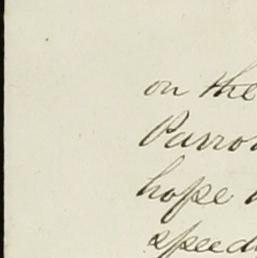 on the
Parro
hope
speed